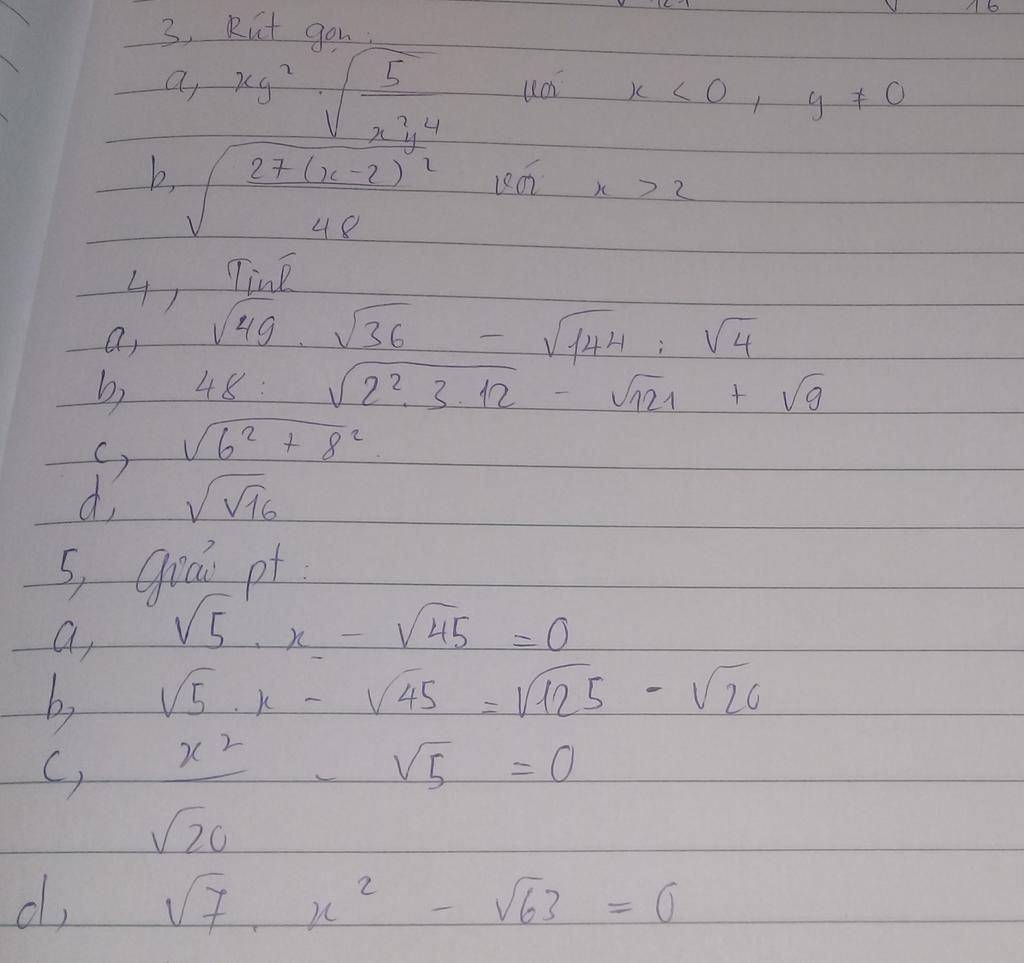 √121 √ 16
3, Rút gọn:
a, xy² . √(5/(x²y⁴)) với x < 0, y ≠ 0
b, √(27(x-2)²/48) với x > 2
4, Tính
a, √49 . √36 - √144 : √4
b, 48 : √(2².3.12) - √121 + √9
c, √(6² + 8²)
d, √√16
5, Giải pt:
a, √5 . x - √45 = 0
b, √5 . x - √45 = √125 - √20
c, x²/√20 - √5 = 0
d, √7 . x² - √63 = 0